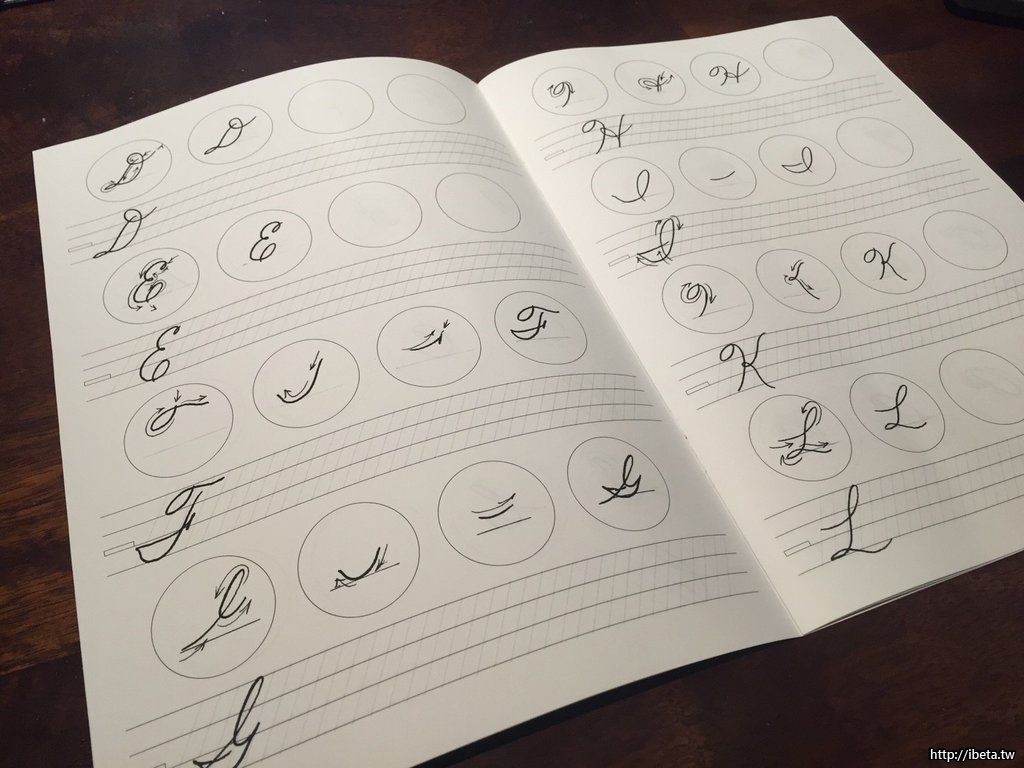 D D
D
E E
E
F
F
G
G
H
H
I
I
K
K
L L
L
http://ibeta.tw